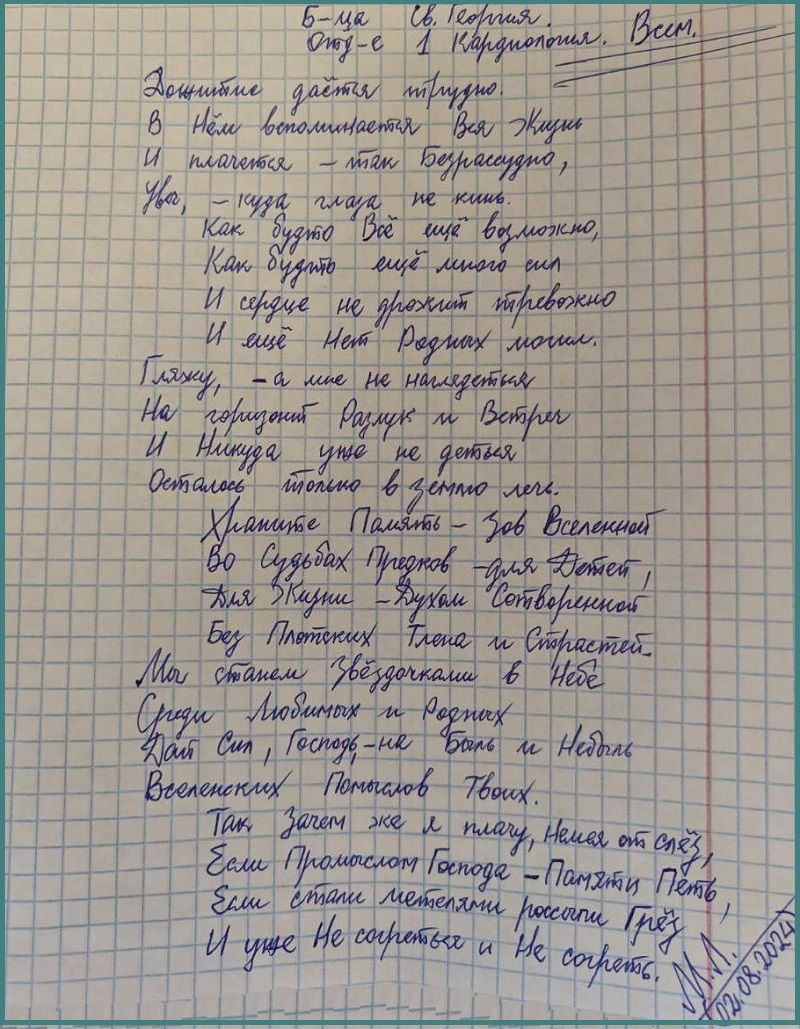 Б-ца Св. Георгия.
Отд-е 1 Кардиология. Всем.
Дожитие даётся трудно.
В Нём вспоминается Вся Жизнь
И плачется – так Безрассудно,
Увы, – куда глаза не кинь.
Как будто Всё ещё возможно,
Как будть ещё много сил
И сердце не дрожит тревожно
И ещё Нет Родных могил.
Гляжу, – а мне не наглядеться
На горизонт Разлук и Встреч
И Никуда уже не деться
Осталось только в землю лечь.
Храните Память – Зов Вселенной
Во Судьбах Предков – для Детей,
Для Жизни – Духом Сотворенной
Без Плотских Тлена и Страстей.
Мы станем Звёздочками в Небе
Среди Любимых и Родных
Дай Сил, Господь, – на Быль и Небыль
Вселенских Помыслов Твоих.
Так Зачем же я плачу, немея от слёз,
Если Промыслом Господа – Памяти Петь,
Если стали метелями россыпи Грёз,
И уже Не согреться и Не согреть.
М.Л.
02.08.2024